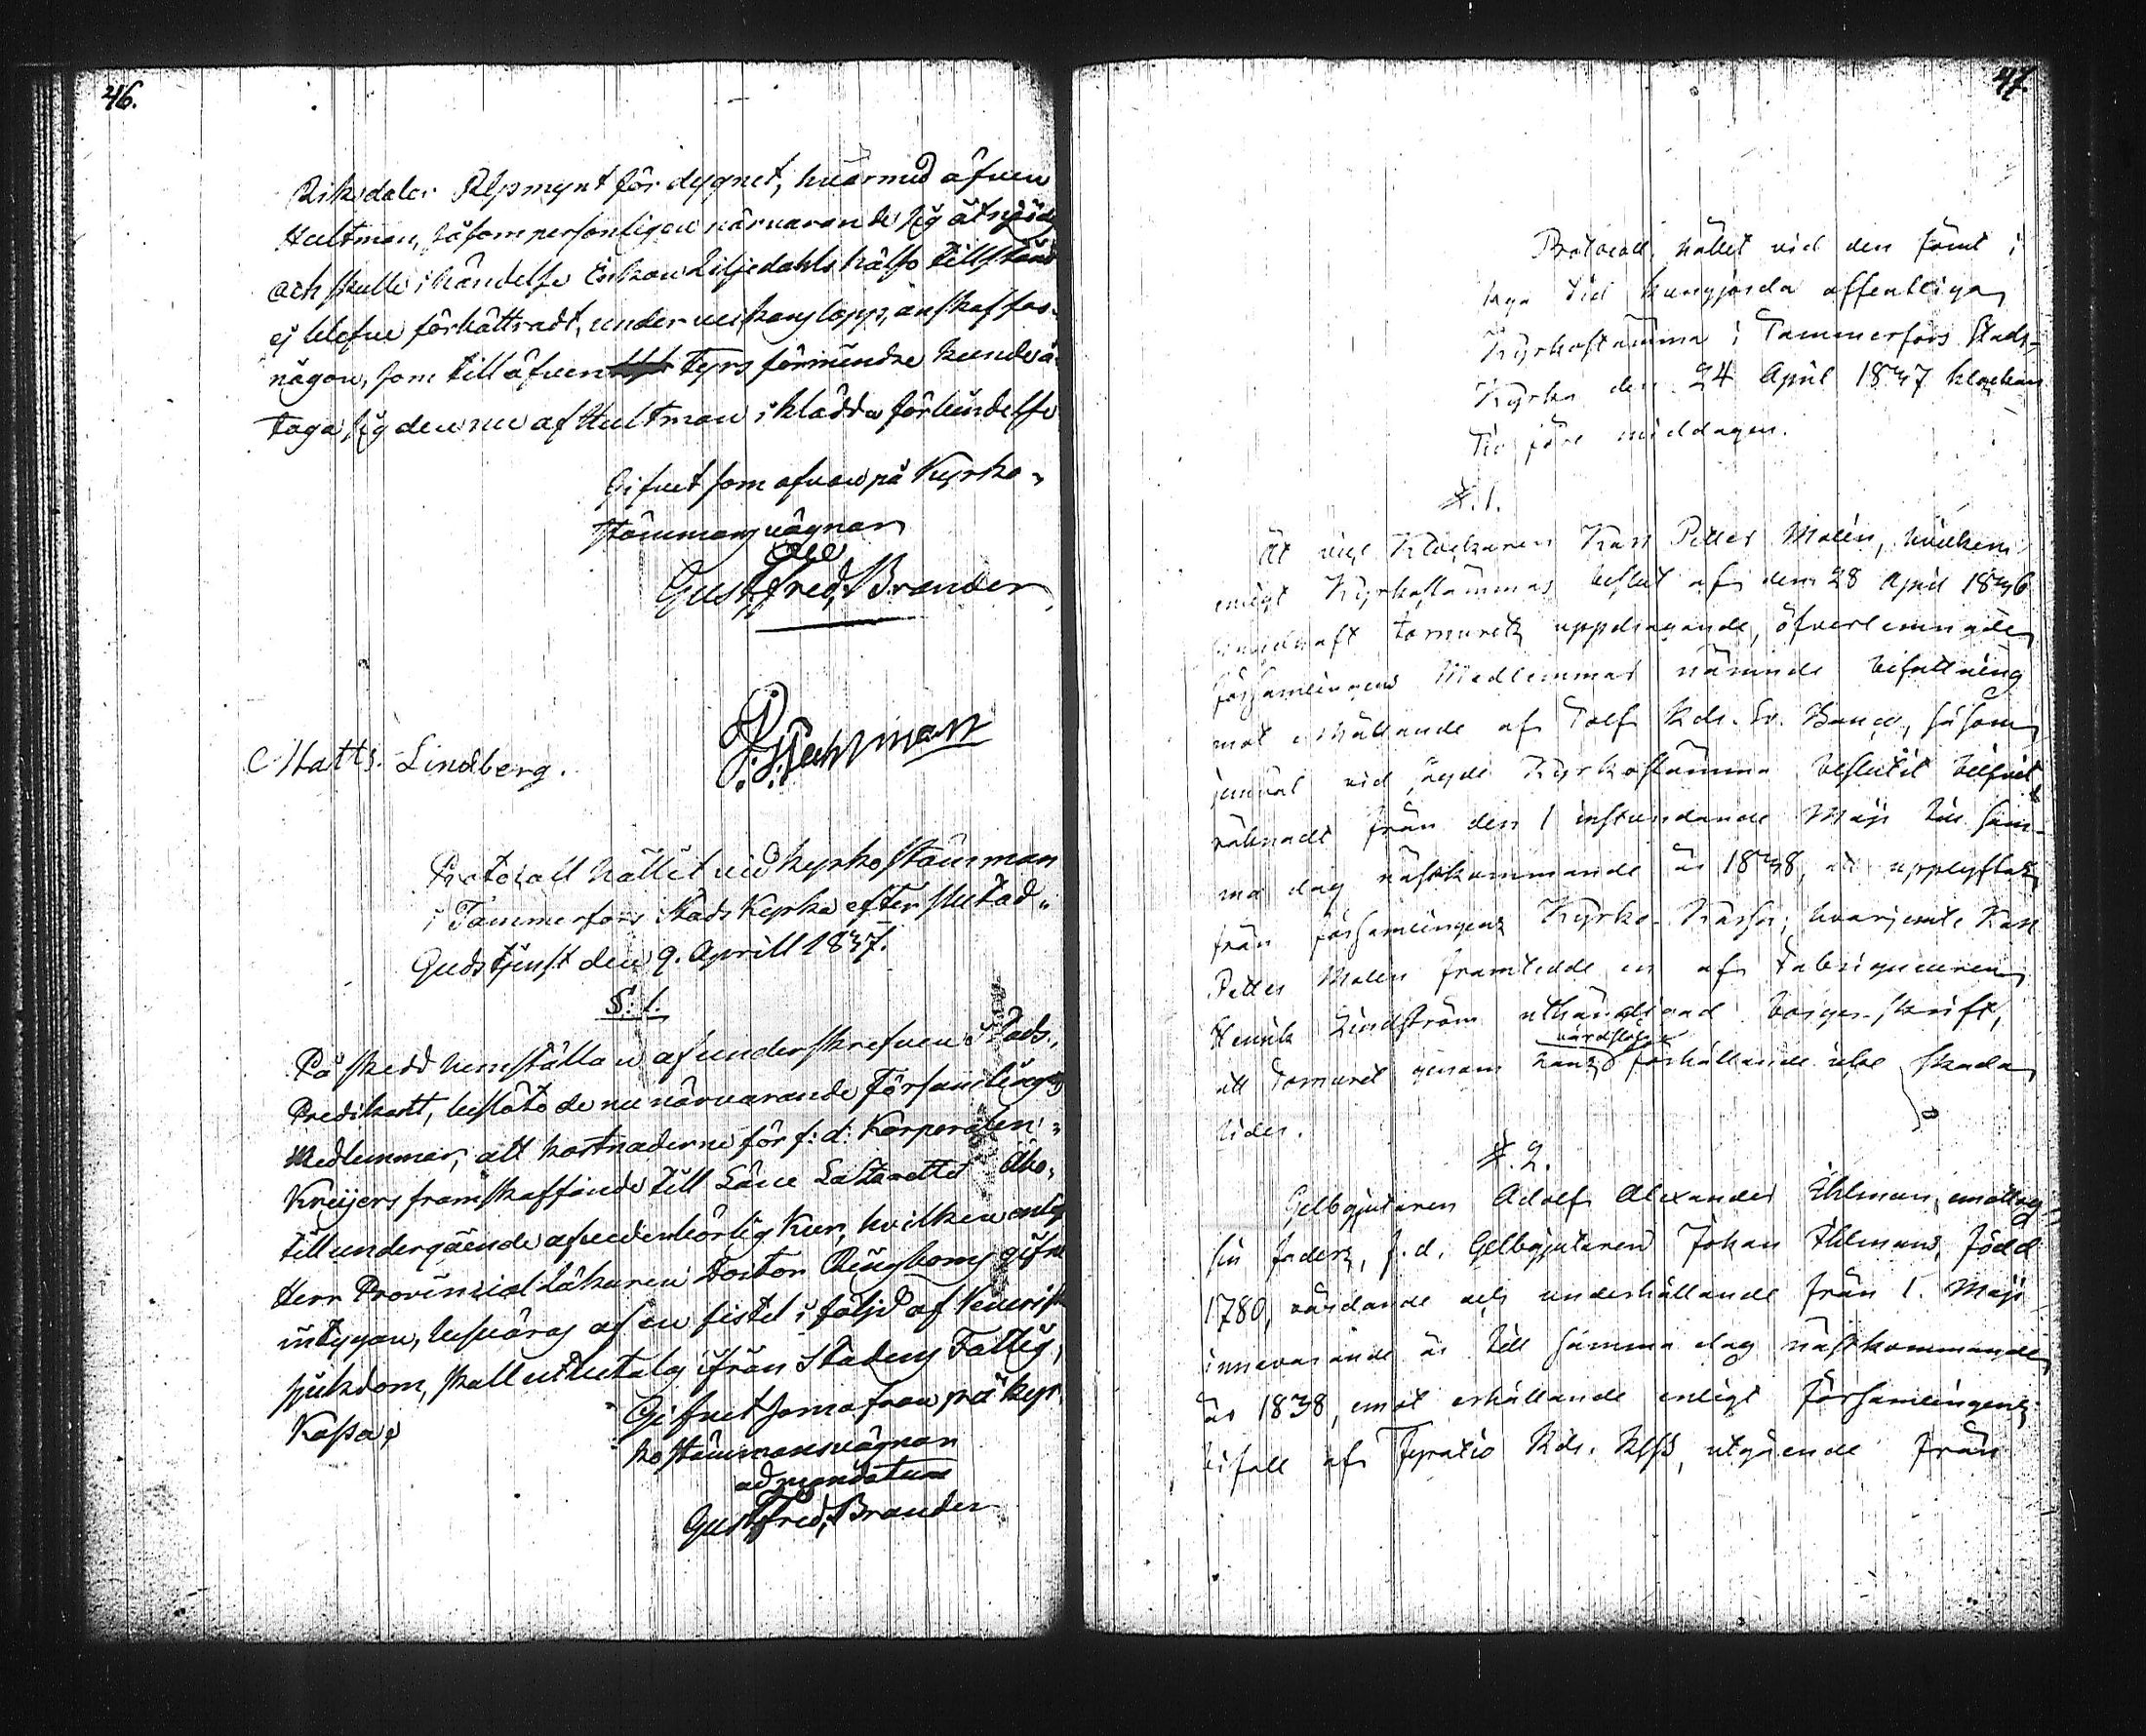 46.
Riksdaler Rgsmynt för dygnet, hvarmed äfven
Hultman, såsom personligen närvarande sig åtnöjde
och skulle i händelse Enkan Liljedahls hälso tillstånd
ej blefve förbättradt, under veckans lopp, anskaffas
någon, som till äfven Fyra förmindre kunde å-
taga sig den nu af Hultman iklädda förbindelse
Gifvet som ofvan på Kyrko-
stämmans vägnar
Gust. Fred. Brander
C. Matts. Lindberg.
Protocoll hållit vid kyrkostämman
i Tammerfors Stads Kyrka efter slutad
Gudstjenst den 9. Aprill 1837.
§. 1.
På skedd hemställan af underskrefven Stads-
Predikant, beslöto de nu närvarande Församlings
Medlemmar, att kostnaderne för f: d: Korporalen
Kreijers framskaffande till Läne Lazarettet i Åbo,
till undergående af vederbörlig Kur, hvilken enligt
Herr Provincial Läkaren Doctor Ringboms gifne
intygan, besväras af en fistel i följd af Venerisk
sjukdom, skall utbetalas ifrån Stadens Fattig,
Kassa.
Gifvet som ofvan på kyr-
kostämmans vägnar
ad mandatum
Gust. Fred. Brander
47.
Protocoll, hållet vid den sömt i
laga tid kungjorda offentliga
Kyrkostämma i Tammerfors Stads-
Kyrka den 24 April 1837 klockan
Tio före middagen.
§. 1.
Åt vice Klockaren Karl Petter Malén, hvilken
enligt Kyrkostämmas beslut af den 28 April 1836
innehaft tornurets uppdragande, öfverlemnade
församlingens Medlemmar nämnde befattning
mot erhållande af Tolf Rdr. Sv. Banco, såsom
jemväl vid sagde Kyrkostämma beslutit blifvit
räknadt från den 1 instundande Maji till sam-
ma dag nästkommande år 1838, at upplyftas
från församlingens Kyrko-Kassa; hvarjemte Karl
Petter Malén framtedde en af Fabriqueuren
Henrik Lindström uthändigad borgesskrift,
att tornuret genom hans vårdslösa förhållande icke skada
lider.
§. 2.
Gelbgjutaren Adolf Alexander Ihlman, emottog
sin faders, f. d. Gelbgjutaren Johan Ihlmans, född
1780, vårdande och underhållande från 1. Maji
innevarande år till samma dag nästkommande
år 1838, emot erhållande enligt församlingens
bifall af Fyratio Rdr. Rgs, utgående från